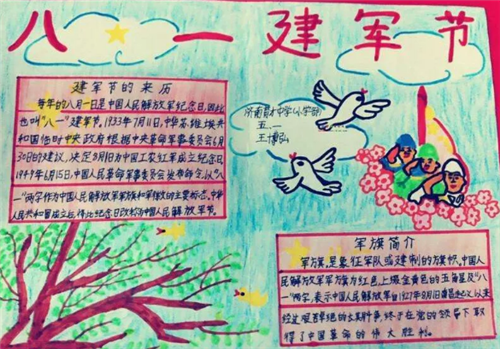 八一建军节
建军节的来历
每年的八月一日是中国人民解放军纪念日,因此
也叫“八一”建军节。1933年7月11日,中华苏维埃共
和国临时中央政府根据中央革命军事委员会6月
30日的建议,决定8月1日为中国工农红军成立纪念日。
1949年6月15日,中国人民革命军事委员会发布命令,以“八
一”两字作为中国人民解放军军旗和军徽的主要标志。中华
人民共和国成立后,将此纪念日改称为中国人民解放军建军节。
五.一
军旗简介
军旗,是象征军队或建制的旗帜,中国人
民解放军军旗为红色,上缀金黄色的五角星及“八
一”两字,表示中国人民解放军自1927年8月1日南昌起义以来
经过艰苦卓绝的,终于在党的领导下取
得了中国革命的伟大胜利.